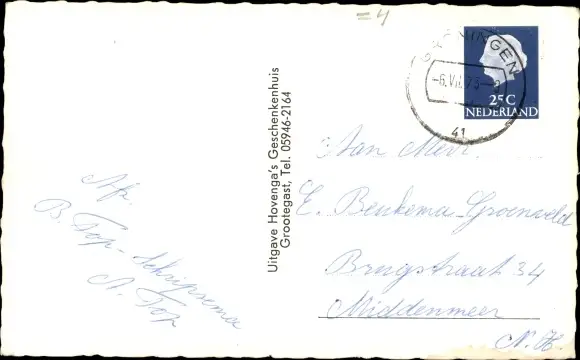 =4
GRONINGEN
-6.VII.7
41
25 C
NEDERLAND
Uitgave Hovenga's Geschenkenhuis
Grootegast, Tel. 05946-2164
Aan Mevr.
E. Beukema-Groeneveld
Brugstraat 34
Middenmeer
N.H.
Afz.
B. Top-Schripsema
A. Top